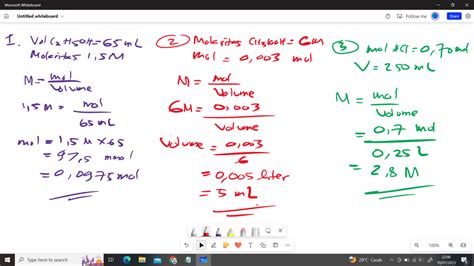 Microsoft Whiteboard
Untitled whiteboard
Follow me
Share
1. Vol C2H5OH = 65 mL
Molaritas 1,5 M
M = mol
Volume
1,5 M = mol
65 mL
mol = 1,5 M x 65
= 97,5 mmol
= 0,0975 mol
2 Molaritas CH3COOH = 6M
mol = 0,003 mol
M = mol
Volume
6M = 0,003
Volume
Volume = 0,003
6
= 0,005 liter
= 5 mL
3 mol HCl = 0,70 mol
V = 250 mL
M = mol
Volume
= 0,7 mol
0,25 L
= 2,8 M
Type here to search
28°C Cerah
22:08
10/07/2023